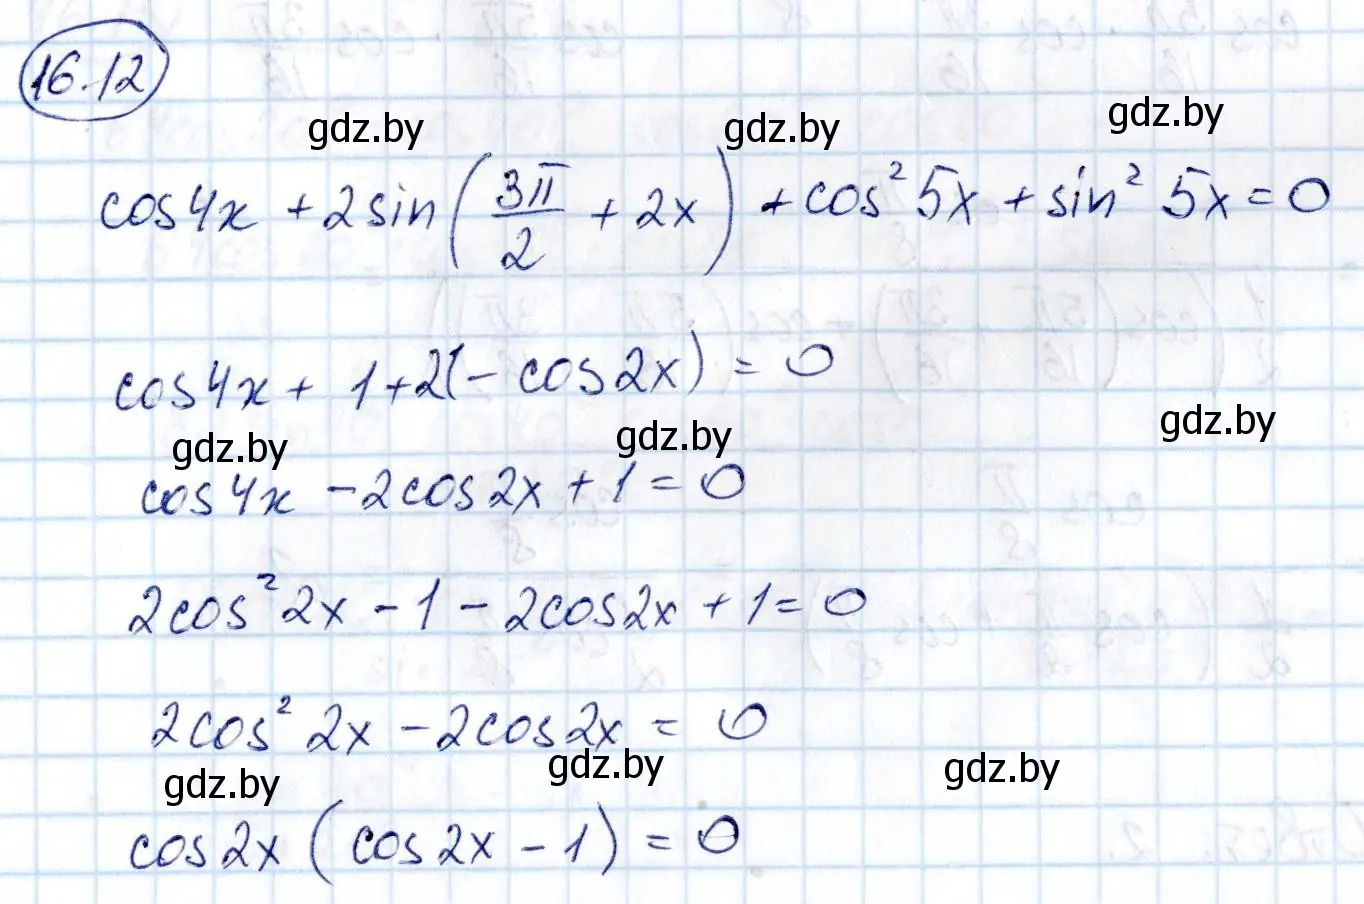 16.12
gdz.by gdz.by gdz.by
cos4x + 2sin(3π/2 + 2x) + cos² 5x + sin² 5x = 0
cos4x + 1 + 2(- cos2x) = 0
gdz.by gdz.by gdz.by
cos4x - 2cos2x + 1 = 0
2cos² 2x - 1 - 2cos2x + 1 = 0
2cos² 2x - 2cos2x = 0
gdz.by gdz.by gdz.by
cos2x (cos2x - 1) = 0